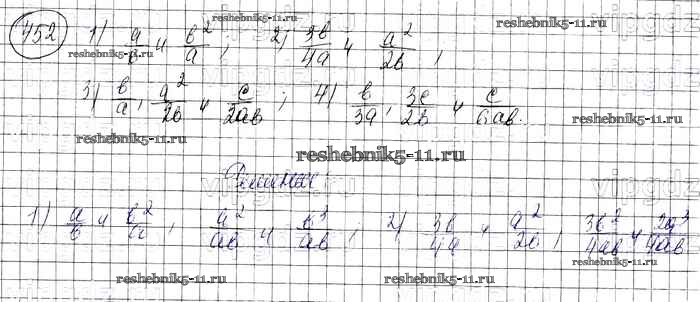 452 1) a/в и в²/a ; 2) 3в/4a и a²/2в ;
3) в/a, a²/2в и c/2aв ; 4) в/3a, 3c/2в и c/6aв.
Решение:
1) a/в и в²/a ; a²/aв и в³/aв ; 2) 3в/4a и a²/2в ; 3в²/4aв и 2a³/4aв
reshebnik5-11.ru
reshebnik5-11.ru
reshebnik5-11.ru
reshebnik5-11.ru
reshebnik5-11.ru
reshebnik5-11.ru
reshebnik5-11.ru
reshebnik5-11.ru